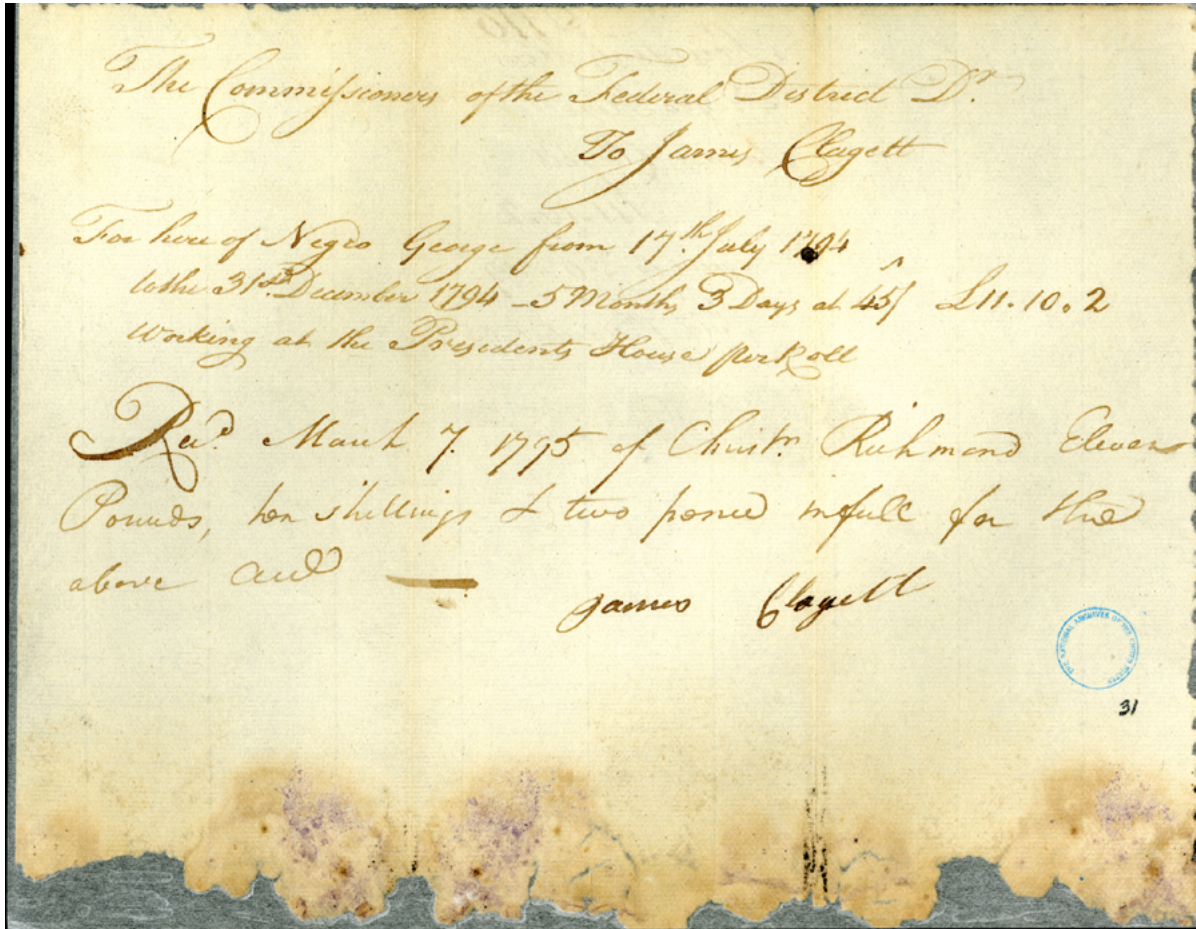 The Commissioners of the Federal District Dr.
To James Clagett
For hire of Negro George from 17th July 1794
to the 31st December 1794 – 5 Months 3 Days at 45/ £11.10.2
Working at the Presedents House per Roll
Recd March 7. 1795 of Christr. Richmond Eleven
Pounds, ten shillings & two pence in full for the
above acct —
James Clagett
THE NATIONAL ARCHIVES OF THE UNITED STATES
31